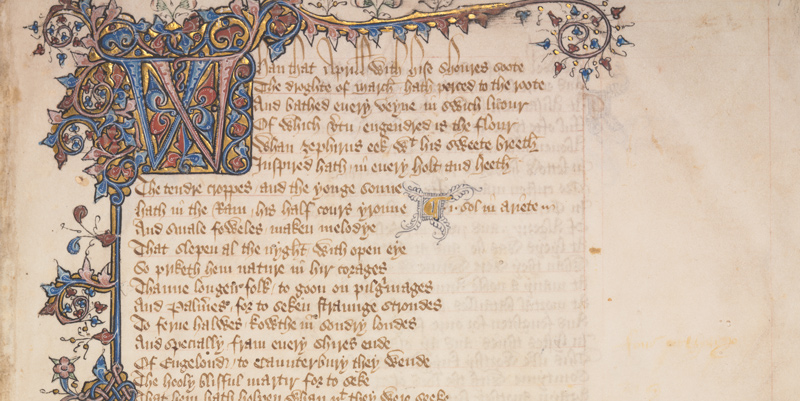 Whan that Aprill with hise shoures soote
The droghte of march hath perced to the roote
And bathed euery veyne in swich licour
Of which vtu engendred is the flour
Whan zephirus eek wt his sweete breeth
Inspired hath in euery holt and heeth
The tendre croppes and the yonge sonne
hath in the Ram his half cours yronne i· sol in ariete
And smale foweles maken melodye
That slepen al the nyght with open eye
So priketh hem nature in hir corages
Thanne longen folk to goon on pilgrimages
And Palmeres for to seken straunge strondes
To ferne halwes kowthe in sondry londes
And specially fram euery shires ende
Of Engelond to Caunterbury they wende
The hooly blisful martir for to seke
That hem hath holpen whan þt they were seeke